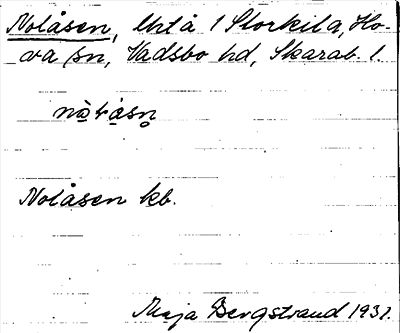 Nolåsen, lht å 1 Storkila, Ho-
va sn, Vadsbo hd, Skarab. l.
nò̱lå̱sn̥
Nolåsen kb.
Maja Bergstrand 1931.